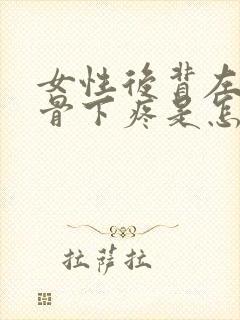 女性后背左
骨下疼是怎
拉萨拉